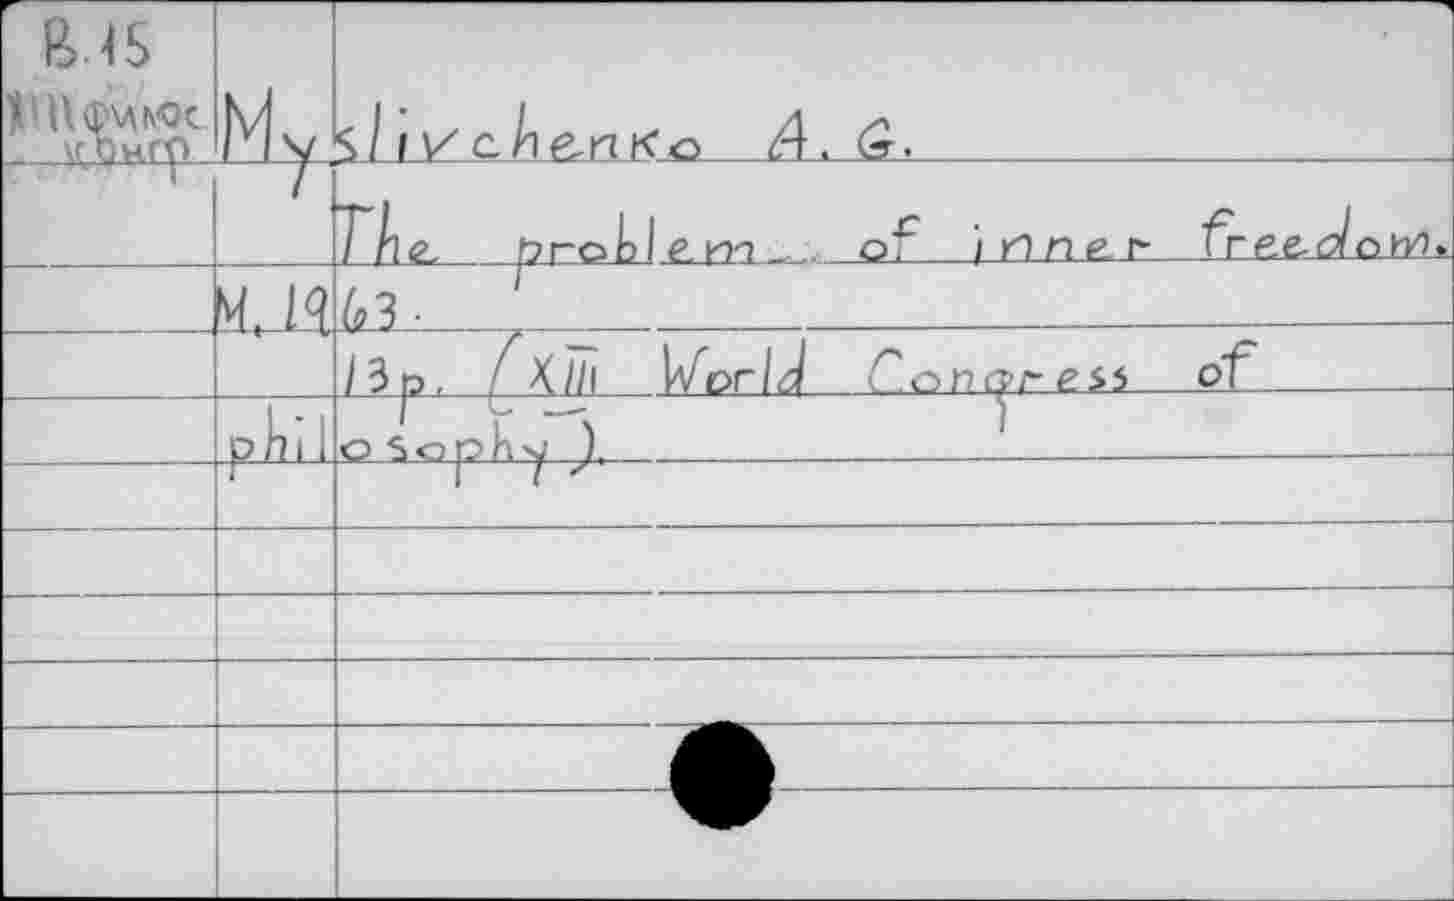 В.15
Myslivchenko A. G.
The problem of inner freedom.
M. 1963.
13p. (XIII World Congress of
philosophy).